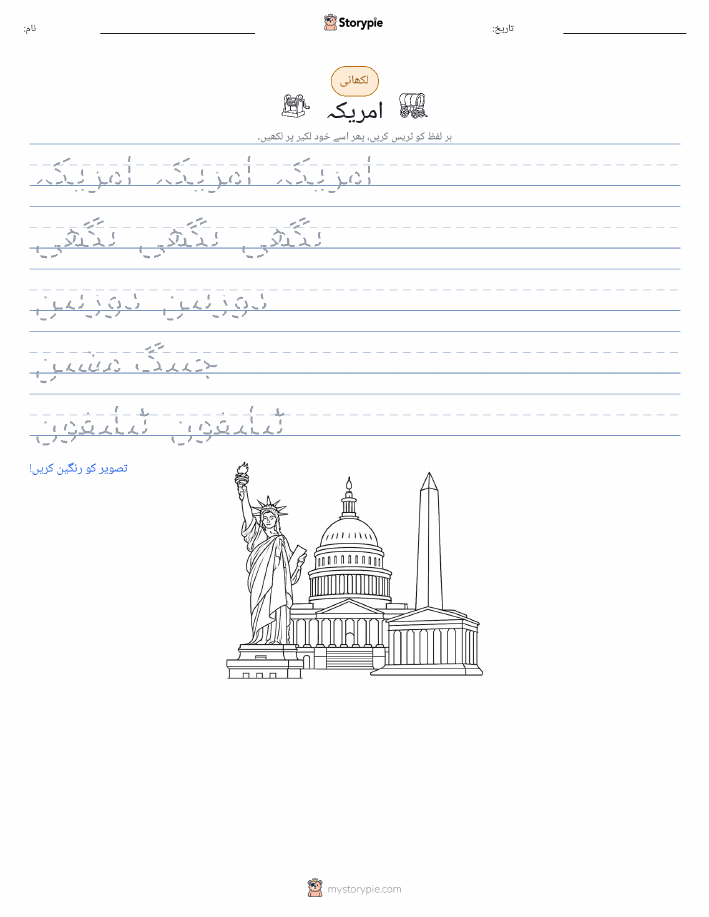 نام:
Storypie
تاریخ:
لکھائی
امریکہ
ہر لفظ کو ٹریس کریں، پھر اسے خود لکیر پر لکھیں۔
امریکہ امریکہ امریکہ
مشین
ٹیلیفون ٹیلیفون
تصویر کو رنگین کریں!
mystorypie.com